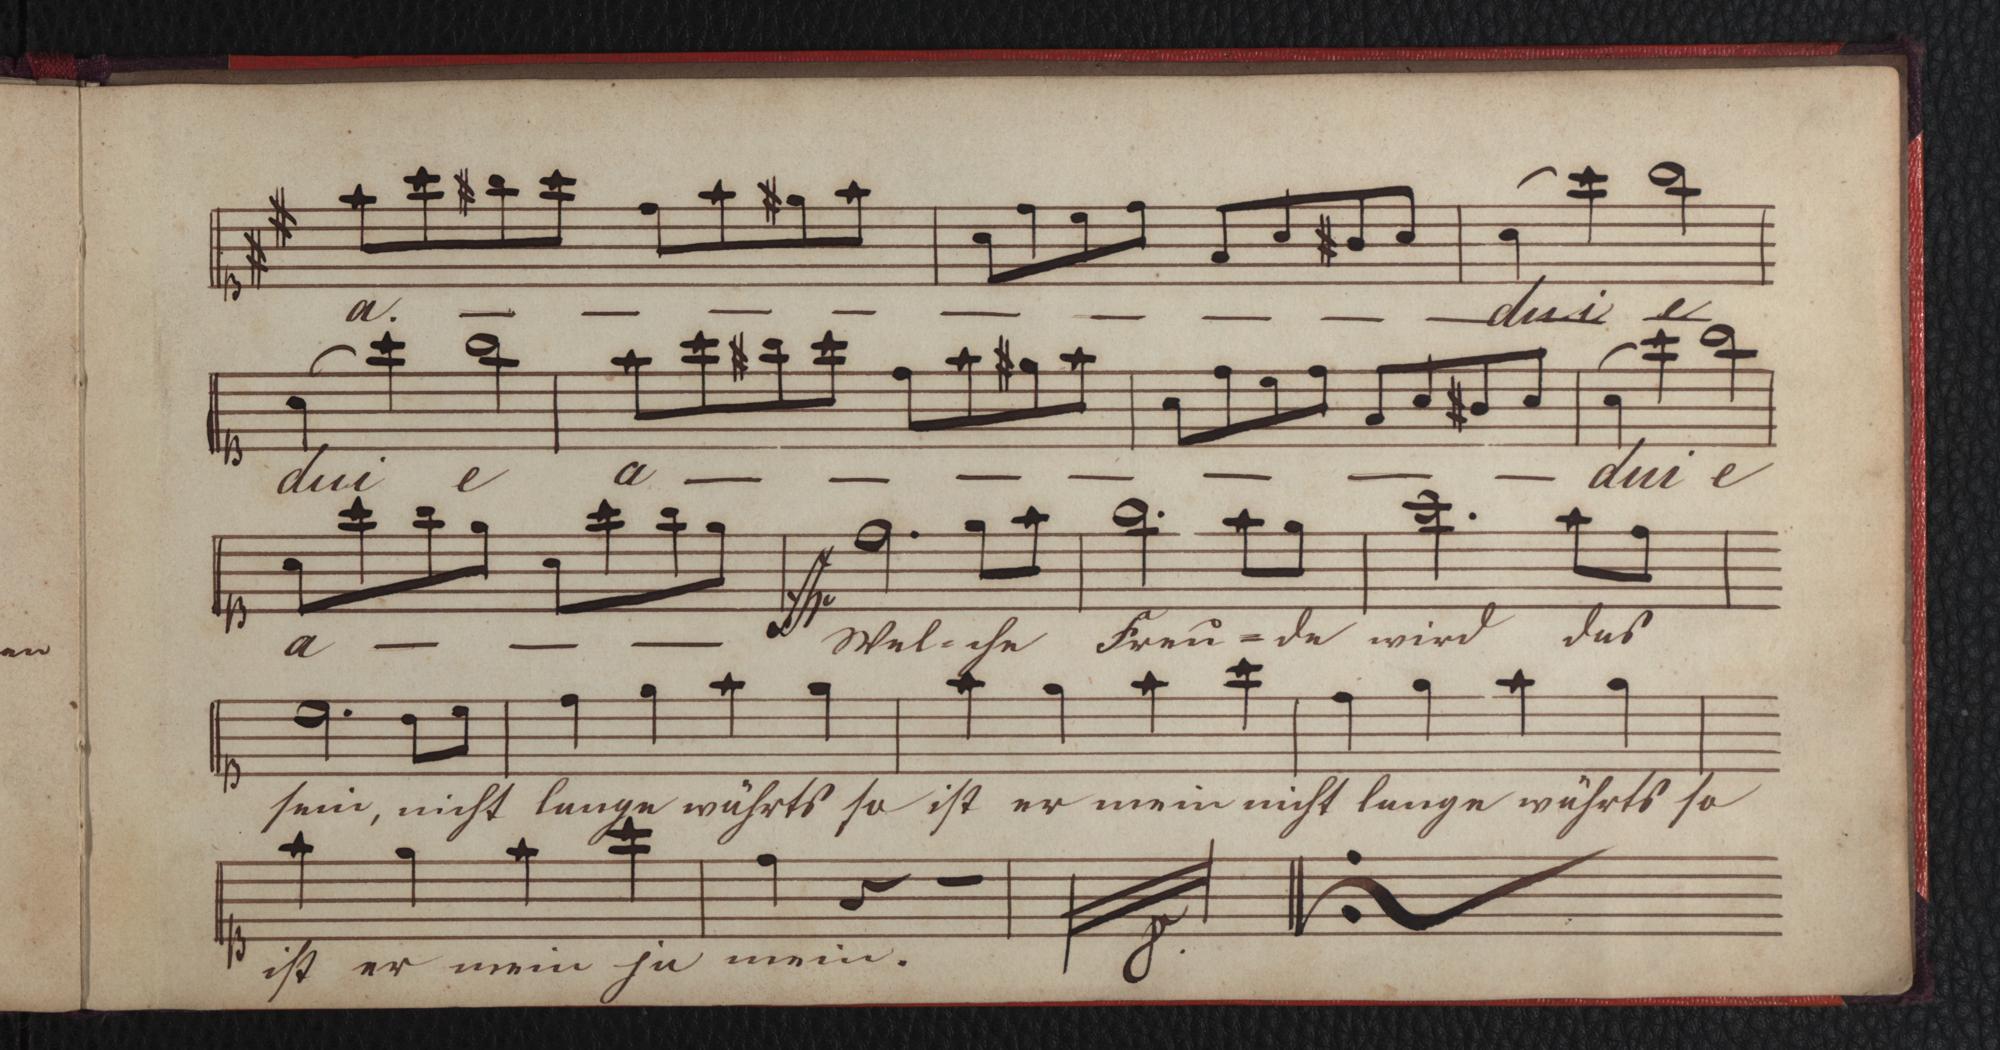 a. — — — — — — — — — dui e
dui e a — — — — — — — dui e
a — — — Wel=che Freu=de wird das
sein, nicht lange währts so ist er mein nicht lange währts so
ist er mein ja mein.
p.
en